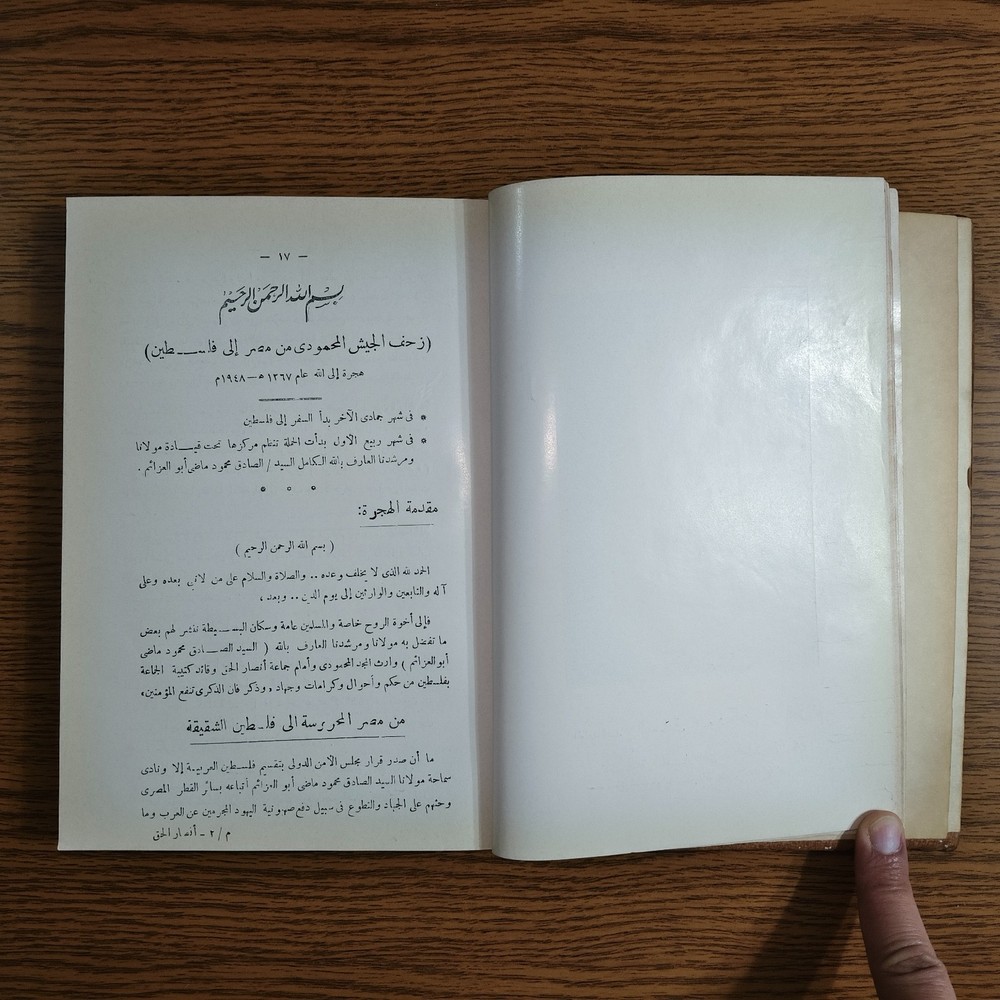 — ١٧ —
بسم الله الرحمن الرحيم
(زحف الجيش المحمودى من مصر إلى فلسطين)
هجرة إلى الله عام ١٣٦٧ ه — ١٩٤٨م
* فى شهر جمادى الآخر بدأ السفر إلى فلسطين
* فى شهر ربيع الأول بدأت الحملة تنتظم مركزها تحت قيادة مولانا
ومرشدنا العارف بالله الكامل السيد / الصادق محمود ماضى أبو العزائم .
مقدمة الهجرة:
( بسم الله الرحمن الرحيم )
الحمد لله الذى لا يخلف وعده .. والصلاة والسلام على من لا نبى بعده وعلى
آله والتابعين والوارثين إلى يوم الدين .. وبعد ،
فإلى أخوة الروح خاصة والمسلمين عامة وسكان البسيطة ننشر لهم بعض
ما تفضل به مولانا ومرشدنا العارف بالله ( السيد الصادق محمود ماضى
أبو العزائم ) وارث المجد المحمودى وأمام جماعة أنصار الحق وقائد كتيبة الجماعة
بفلسطين من حكم وأحوال وكرامات وجهاد , وذكر فان الذكرى تنفع المؤمنين،
من مصر المحروسة الى فلسطين الشقيقة
ما أن صدر قرار مجلس الأمن الدولى بتقسيم فلسطين العربية إلا ونادى
سماحة مولانا السيد الصادق محمود ماضى أبو العزائم أتباعه بسائر القطر المصرى
وحثهم على الجهاد والتطوع فى سبيل دفع صهيونية اليهود المجرمين عن العرب وما
م / ٢ - أنصار الحق